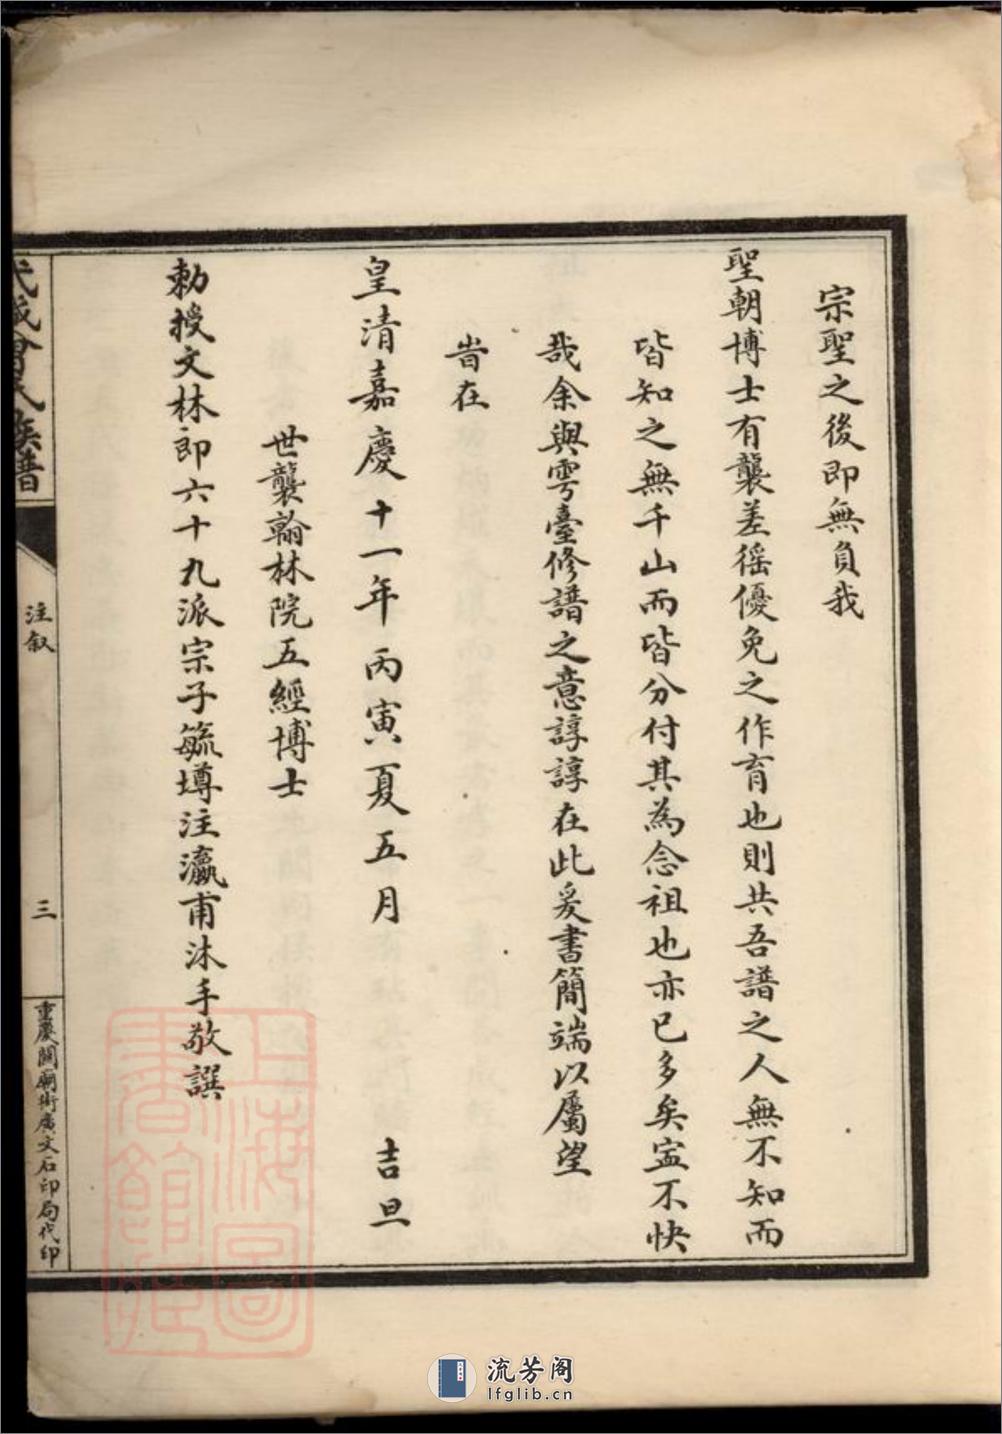 宗聖之後即無負我
聖朝博士有襲差徭優免之作育也則共吾譜之人無不知而
皆知之無千山而皆分付其為念祖也亦已多矣寍不快
哉余與雩臺修譜之意諄諄在此爰書簡端以屬望
旹在
皇清嘉慶十一年丙寅夏五月 吉旦
世襲翰林院五經博士
勅授文林郎六十九派宗子毓墫注瀛甫沐手敬譔
武城曾氏族譜
注敘
三
重慶關廟街廣文石印局代印
上海圖書館藏
流芳阁
lfglib.cn